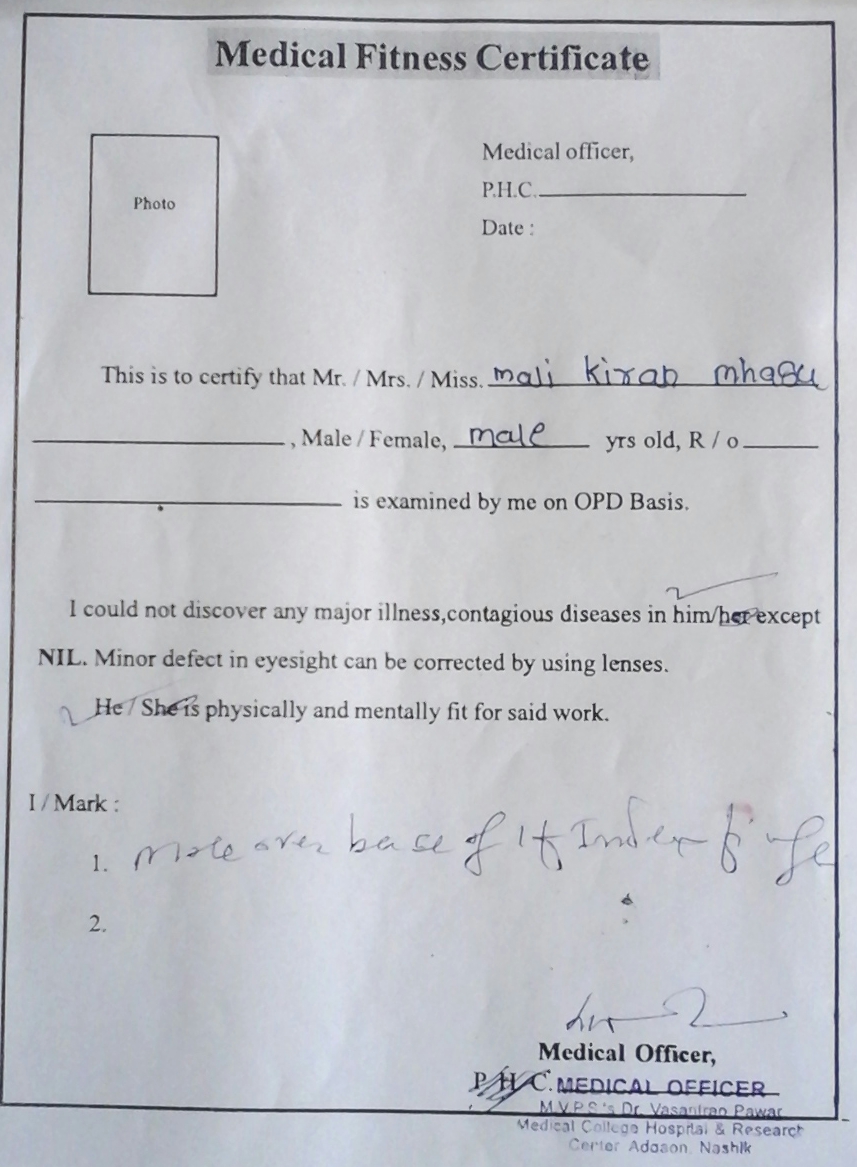 Medical Fitness Certificate
Photo
Medical officer,
P.H.C.
Date :
This is to certify that Mr. / Mrs. / Miss. mali kiran mhasu
, Male / Female, male yrs old, R / o
is examined by me on OPD Basis.
I could not discover any major illness,contagious diseases in him/her except
NIL. Minor defect in eyesight can be corrected by using lenses.
He / She is physically and mentally fit for said work.
I / Mark :
1. Mole over base of lt Index finge
2.
Medical Officer,
P.H.C. MEDICAL OFFICER
M.V.P.S's Dr. Vasantrao Pawar
Medical College Hospital & Research
Center Adgaon, Nashik